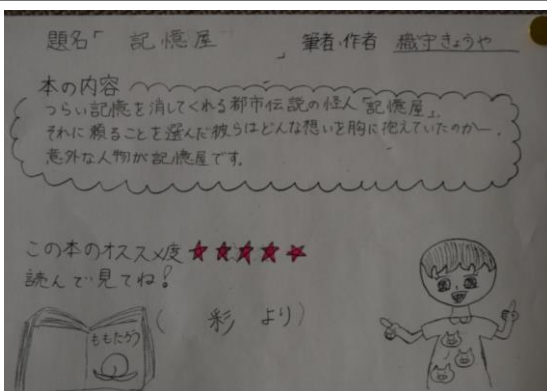 題名「 記憶屋 」 筆者・作者 織守きょうや
本の内容
つらい記憶を消してくれる都市伝説の怪人「記憶屋」。
それに頼ることを選んだ彼らはどんな想いを胸に抱えていたのかー。
意外な人物が記憶屋です。
この本のオススメ度 ★★★★★
読んで見てね!
( 彩 より)
ももたろう